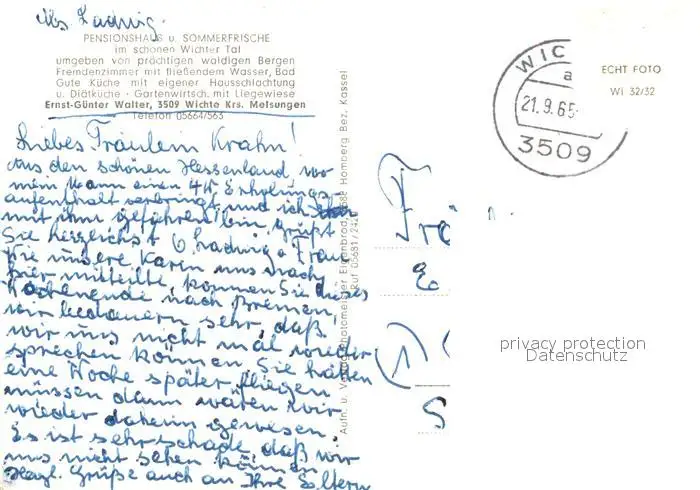 Abs. Ladwig.
PENSIONSHAUS u. SOMMERFRISCHE
im schönen Wichter Tal
umgeben von prächtigen waldigen Bergen
Fremdenzimmer mit fließendem Wasser, Bad
Gute Küche mit eigener Hausschlachtung
u. Diätküche · Gartenwirtsch. mit Liegewiese
Ernst-Günter Walter, 3509 Wichte Krs. Melsungen
Telefon 05664/563
Liebes Fräulein Krahn!
Aus den schönen Hessenland, wo
mein Mann einen 4W. Erholungs-
aufenthalt verbringt und ich
mit ihm gefahren bin, grüßt
Sie herzlichst Ladwig u. Frau
Wie unsere Karin uns nach
hier mitteilte, kommen Sie dieses
Wochenende nach Bremen,
wir bedauern sehr, daß
wir uns nicht mal wieder
sprechen können. Sie hätten
eine Woche später fliegen
müssen dann wären wir
wieder daheim gewesen.
Es ist sehr schade, daß wir
uns nicht sehen können
Herzl. Grüße auch an Ihre Eltern
Aufn. u. Verlag Photomeister Eigenbrod, 3588 Homberg Bez. Kassel
Ruf 05681/2420
WIC
a
21.9.65
3509
ECHT FOTO
Wi 32/32
Frä
S
privacy protection
Datenschutz